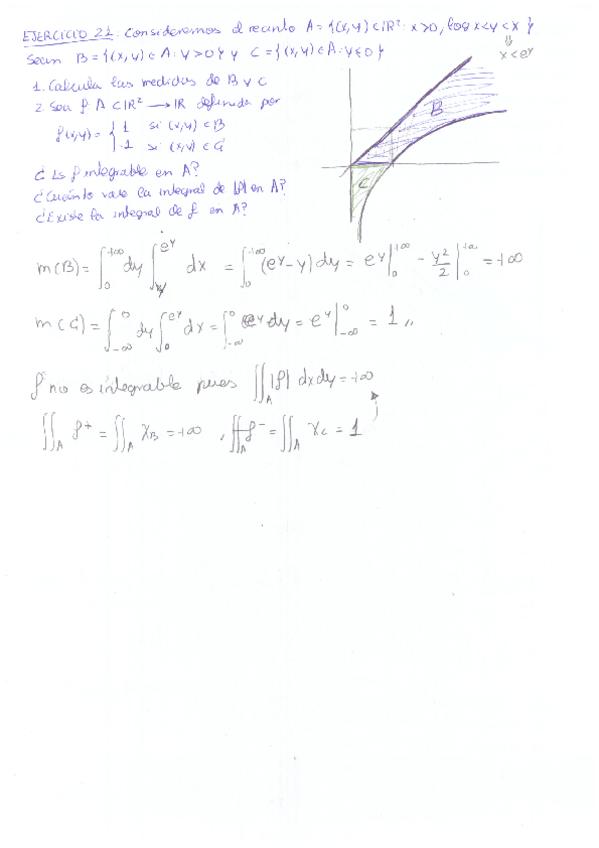 EJERCICIO 21: Consideremos el recinto A = {(x,y) ⊂ ℝ²: x>0, log x<y<x}
⇓
x<e^y
Sean B = {(x,y) ∈ A: y>0} y C = {(x,y) ∈ A: y≤0}
1. Calcula las medidas de B y C
2. Sea f: A ⊂ ℝ² → ℝ definida por
f(x,y) = { 1 si (x,y) ∈ B
-1 si (x,y) ∈ C
¿Es f integrable en A?
¿Cuánto vale la integral de |f| en A?
¿Existe la integral de f en A?
B
C
m(B) = ∫_0^{+∞} dy ∫_y^{e^y} dx = ∫_0^{+∞} (e^y - y) dy = e^y |_0^{+∞} - y²/2 |_0^{+∞} = +∞
m(C) = ∫_{-∞}^0 dy ∫_0^{e^y} dx = ∫_{-∞}^0 e^y dy = e^y |_{-∞}^0 = 1,,
f no es integrable pues ∬_A |f| dx dy = +∞
∬_A f⁺ = ∬_A χ_B = +∞ , ∬_A f⁻ = ∬_A χ_C = 1